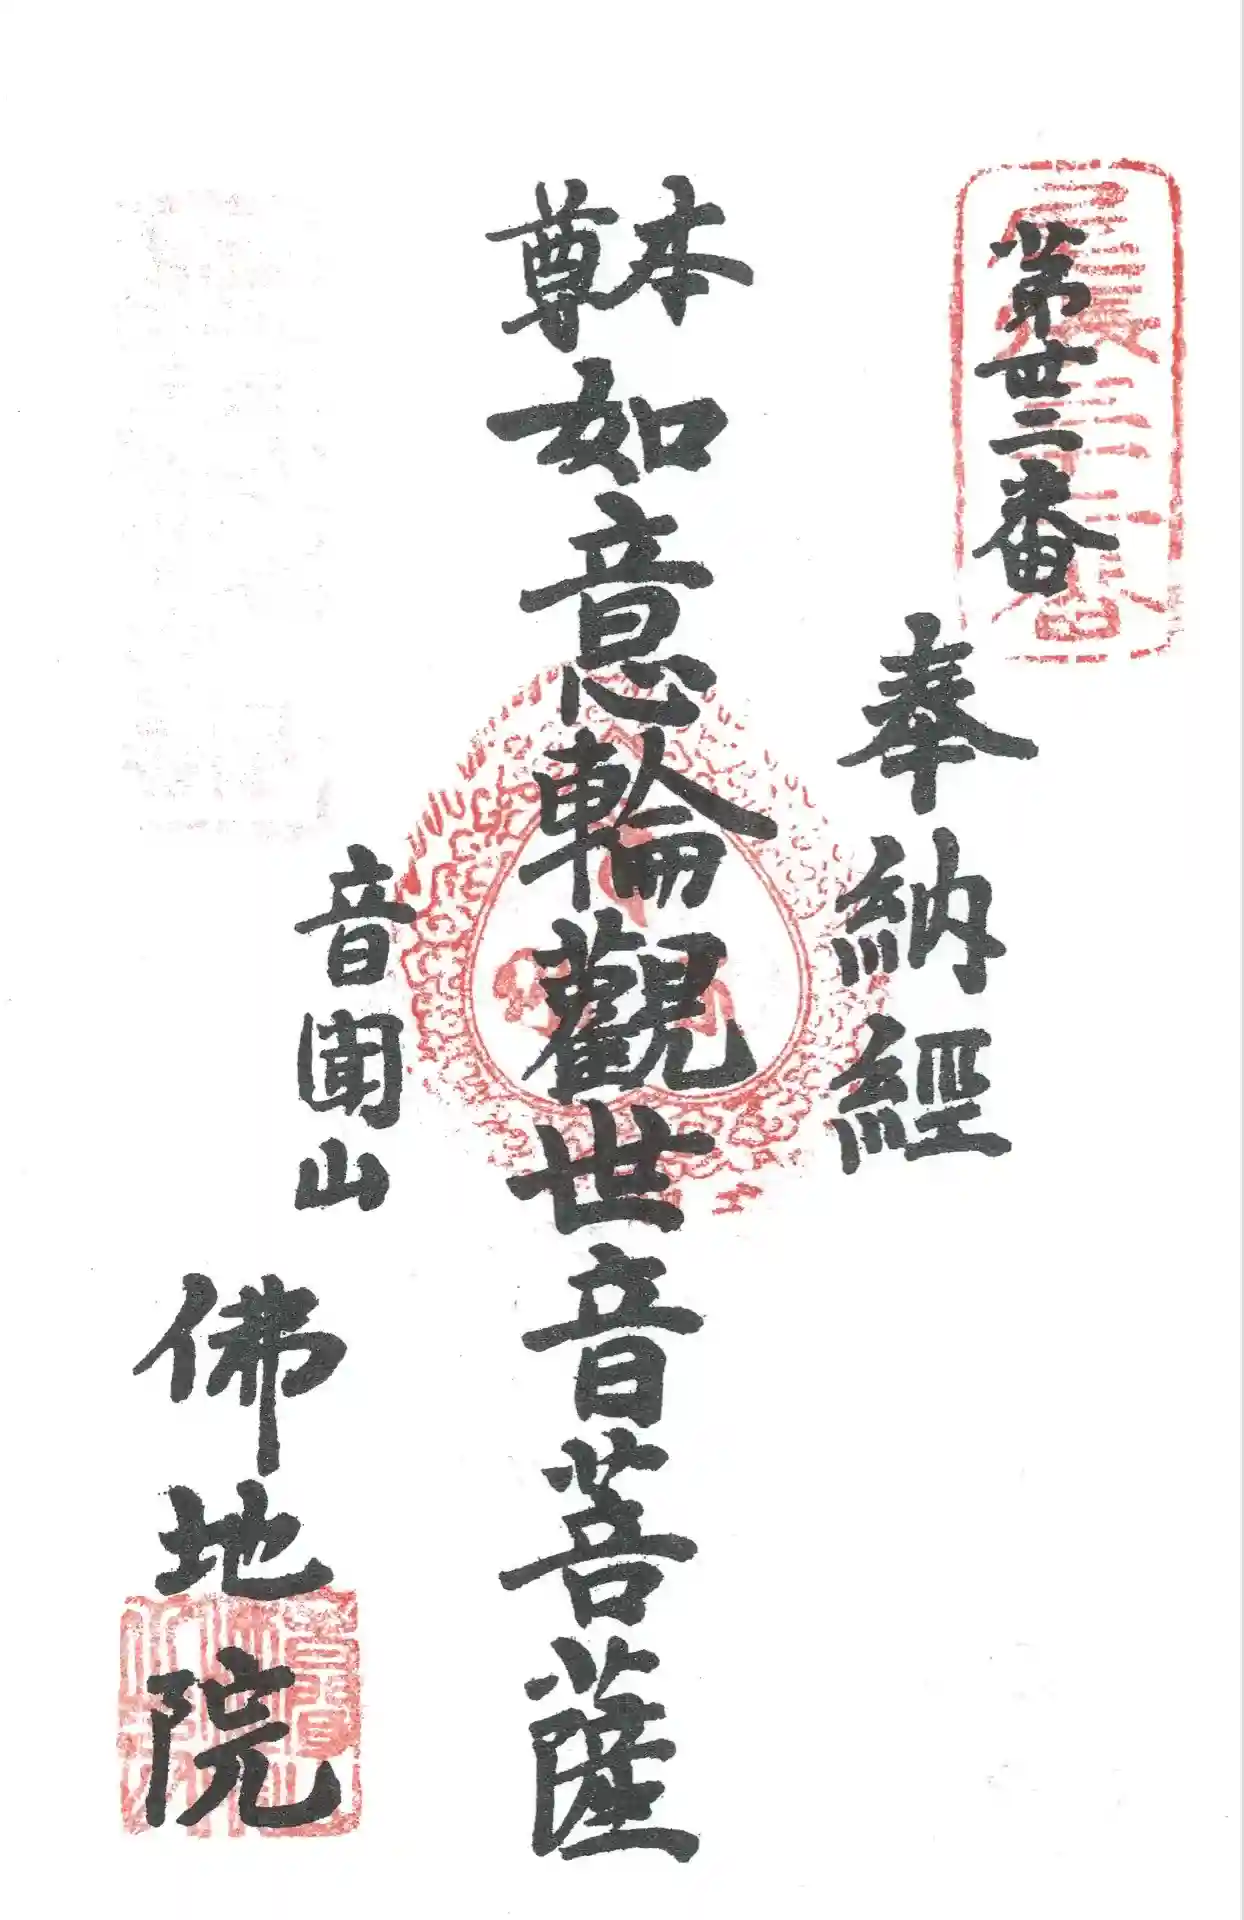 第丗二番
奉納經
本尊 如意輪觀世音菩薩
音聞山
佛地院